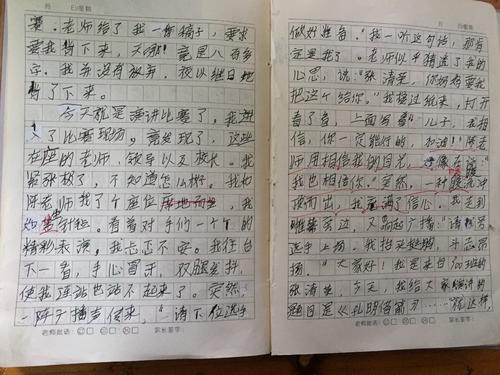 月 日 星期
赛。老师给了我一份稿子，要求
要我背下来，天哪！竟是八百多
字。我并没有放弃，夜以继日地
背了下来。
今天就是演讲比赛了，我进
入了比赛现场，竟发现了，这边
在座的老师，领导以及校长。我
紧张极了，不知道怎么样。我和
陈老师找了个座位席地而坐，我
如坐针毡。看着对手们一个个的
精彩表演，我忐忑不安。我往台
下一看，手心冒汗，双腿发抖，
使我连站也站不起来了。突然，
一阵广播声传来，“请下位选手
老师批语： 家长签字：
月 日 星期
做好准备。”我一听这句话，那肯
定是我了。老师似乎猜透了我的
心思，说：“张清芸，你妈妈要我
把这个给你。”我接过纸来，打开
看了看，上面写着“儿子，我相
信，你一定能行的，加油！”陈老
师用相信我的目光，好像在说：“
我也相信你。”突然，一种暖流冲
按而出，我充满了信心。我走到
帷幕旁边，又响起广播：“请 号
选手上场。我抬头挺胸，斗志昂
扬。“大家好！我是来自 班的
张清芸，今天，我给大家演讲的
题目是《孔明借箭》……”就这样，
老师批语： 家长签字：